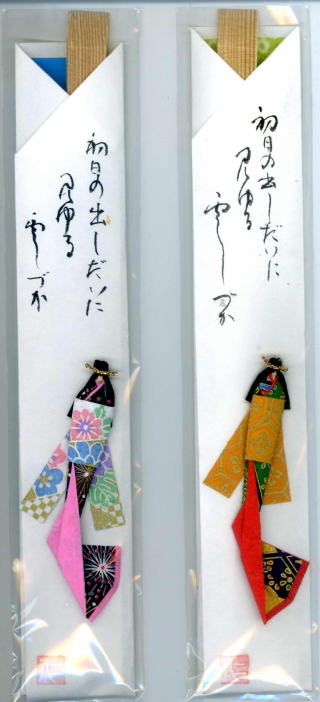 初日の出しだいに
見ゆる
雲しづか
初日の出しだいに
見ゆる
雲しづか